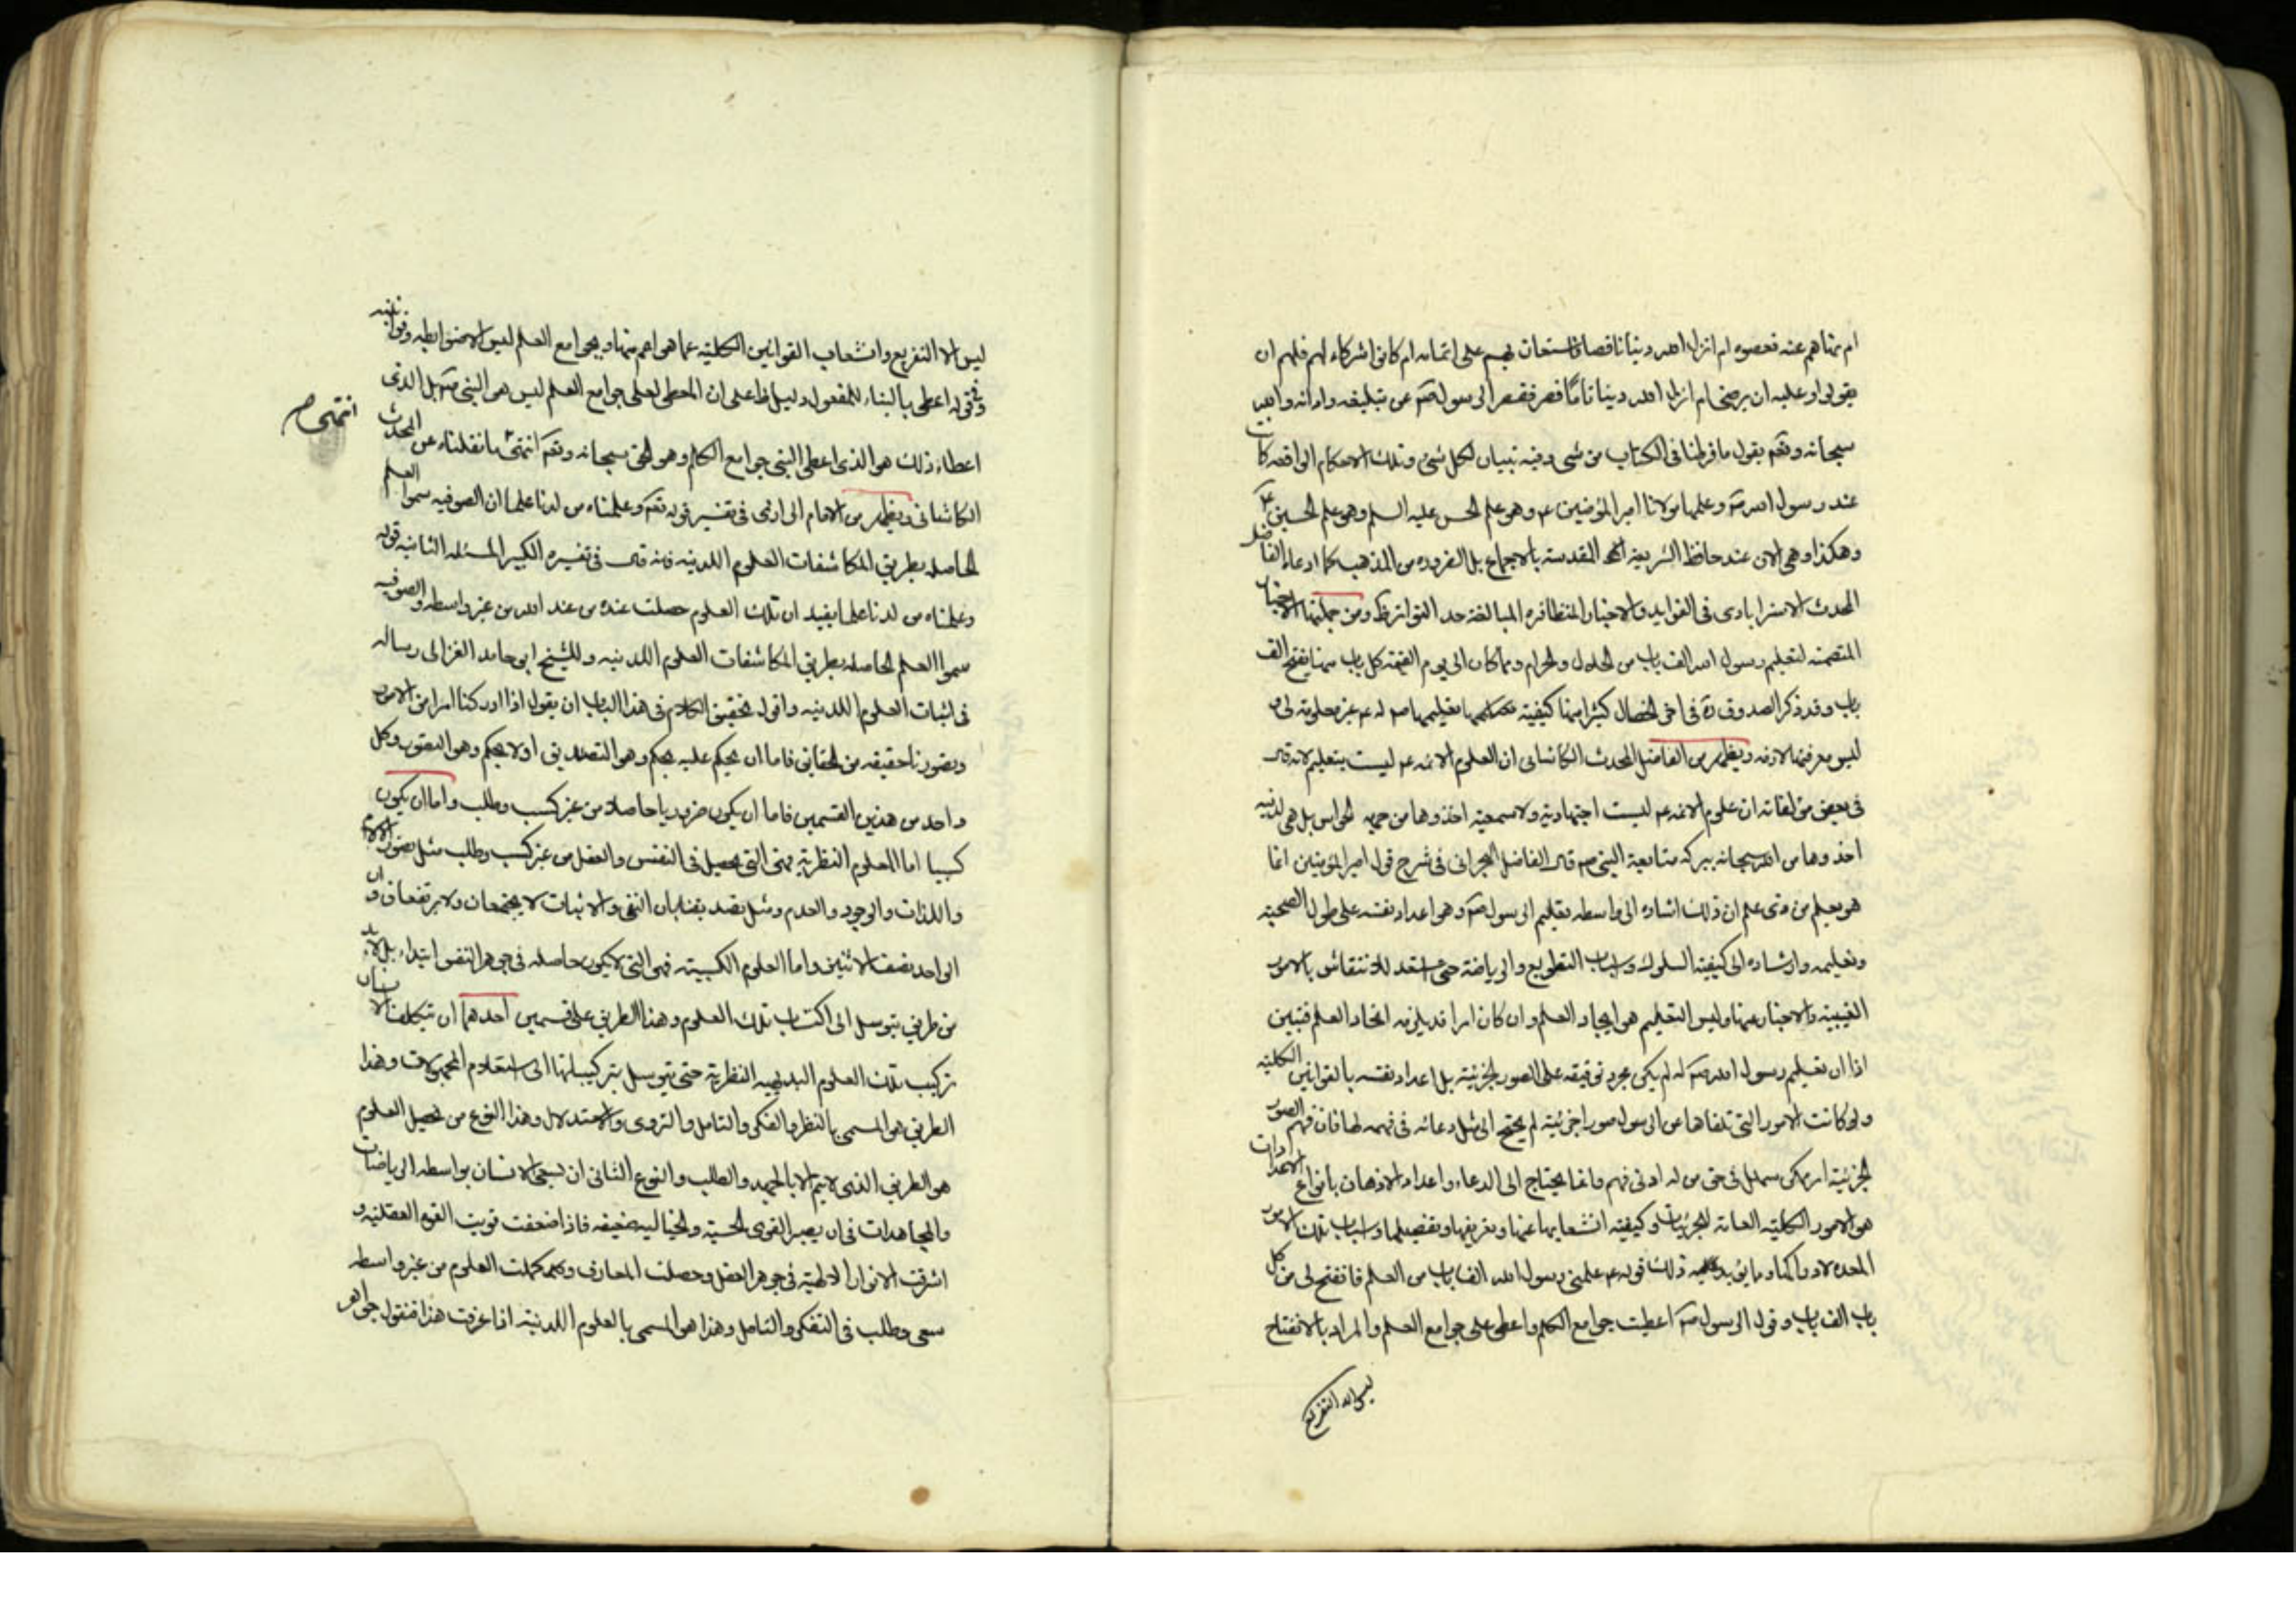 ام نهاهم عنه فعصوه ام انزل الله دينا ناقصا فاستعان بهم على اتمامه ام كانوا شركاء لهم فلهم ان
يقولوا وعليه ان يرضى ام انزل الله دينا تامّا فقصر الرسول صم عن تبليغه وادائه والله
سبحانه وتعم يقول ما فرطنا فى الكتاب من شى وفيه تبيان لكل شئ وتلك الاحكام الواقعه كانت
عند رسول الله صم وعلمها مولانا امير المؤمنين ع وهو علم الحسن عليه السلم وهو علم الحسين ع
وهكذا وهى الان عند حافظ الشريعه المقدسة بالاجماع بل الضروره من المذهب كما ادعاه الفاضل
المحدث الاسترابادى فى الفوايد والاخبار المتظافره البالغة حد التواتر ومن جملتها الاخبار
المتضمنه لتعليم رسول الله الف باب من الحلال والحرام ومما كان الى يوم القيمه كل باب منها يفتح الف
باب وقد ذكر الصدوق ره فى اخر الخصال كثيرا منها كيفية تعليمها صم له ع غير معلومة لى
ليس معرفتها لازمه ويظهر من الفاضل المحدث الكاشانى ان العلوم الائمه ع ليست بتعليم لانه قال
فى بعض مؤلفاته ان علوم الائمه ع ليست اجتهادية ولا سمعية اخذوها من جهه الحواس بل هى لدنيه
اخذوها من الله سبحانه ببركه متابعة النبى صم قال الفاضل البحرانى فى شرح قول امير المؤمنين انما
هو تعلم من ذى علم ان ذلك اشاره الى واسطه تعليم الرسول صم وهو اعداد نفسه على طول الصحبة
وتعليمه وارشاده الى كيفية السلوك واسباب التطويع والرياضة حتى استعد للانتقاش بالامور
الغيبية والاخبار عنها وليس التعليم هو ايجاد العلم وان كان امرا قد يلزمه ايجاد العلم فتبين
اذا ان تعليم رسول الله صم له لم يكن مجرد توقيفه على الصور الجزئية بل اعداد نفسه بالقوانين الكلية
ولو كانت الامور التى تلقاها من الرسول صورا جزئية لم يحتج الى مثل دعائه فى فهمه لها فان فهم الصور
الجزئية امر ممكن سهل فى حق من له ادنى فهم وانما يحتاج الى الدعاء واعداد الاذهان بانواع الاعدادات
هو الامور الكلية العامة للجزئيات وكيفية انشعابها عنها وتفريعها وتفصيلها واسباب تلك الامور
المعده لادراكها ومما يؤيد ذلك قوله ع علمنى رسول الله الف باب من العلم فانفتح لى من كل
باب الف باب وقول الرسول صم اعطيت جوامع الكلم واعطى على جوامع العلم والمراد بالانفتاح
ليس الا التفريع
ليس الا التفريع وانشعاب القوانين الكلية عما هو اعم منها وبجوامع العلم ليس الا ضوابطه وقوانينه
وفى قوله اعطى بالبناء للمفعول دليل ظاهر على ان المعطى لعلى جوامع العلم ليس هو النبى صم بل الذى
اعطاه ذلك هو الذى اعطى النبى جوامع الكلم وهو الحق سبحانه وتعم انتهى ما نقلناه عن المحدث
انتهى صم
الكاشانى ويظهر من الامام الرازى فى تفسير قوله تعم وعلمناه من لدنا علما ان الصوفيه سموا العلم
الحاصله بطريق المكاشفات العلوم اللدنيه فانه قال فى تفسيره الكبير المسئله الثانيه قوله
وعلمناه من لدنا علما يفيد ان تلك العلوم حصلت عنده من عند الله من غير واسطه والصوفيه
سموا العلم الحاصله بطريق المكاشفات العلوم اللدنيه وللشيخ ابى حامد الغزالى رساله
فى اثبات العلوم اللدنيه واقول تحقيق الكلام فى هذا الباب ان يقول اذا ادركنا امرا من الامور
وتصورنا حقيقه من الحقايق فاما ان يحكم عليه بحكم وهو التصديق اولا يحكم وهو التصور وكل
واحد من هذين القسمين فاما ان يكون ضروريا حاصلا من غير كسب وطلب واما ان يكون
كسبيا اما العلوم النظرية فهى التى تحصل فى النفس والعقل من غير كسب وطلب مثل تصور الالام
واللذات والوجود والعدم ومثل تصديقنا بان النفى والاثبات لا يجتمعان ولا يرتفعان وان
الواحد نصف الاثنين واما العلوم الكسبية فهى التى لا يكون حاصله فى جوهر النفس ابتداء بل لابد
من طريق يتوسل الى اكتساب تلك العلوم وهذا الطريق على قسمين احدهما ان يتكلف الانسان
تركيب تلك العلوم البديهيه النظرية حتى يتوسل بتركيبها الى استعلام المجهولات وهذا
الطريق هو المسمى بالنظر والفكر والتامل والتروى والاستدلال وهذا النوع من تحصيل العلوم
هو الطريق الذى لا يتم الا بالجهد والطلب والنوع الثانى ان يسعى الانسان بواسطه الرياضات
والمجاهدات فى ان يصير القوى الحسية والخياليه ضعيفه فاذا ضعفت قويت القوه العقلية و
اشرقت الانوار الالهية فى جوهر العقل وحصلت المعارف وكملت العلوم من غير واسطه
سعى وطلب فى التفكر والتامل وهذا هو المسمى بالعلوم اللدنية اذا عرفت هذا فنقول جواهر